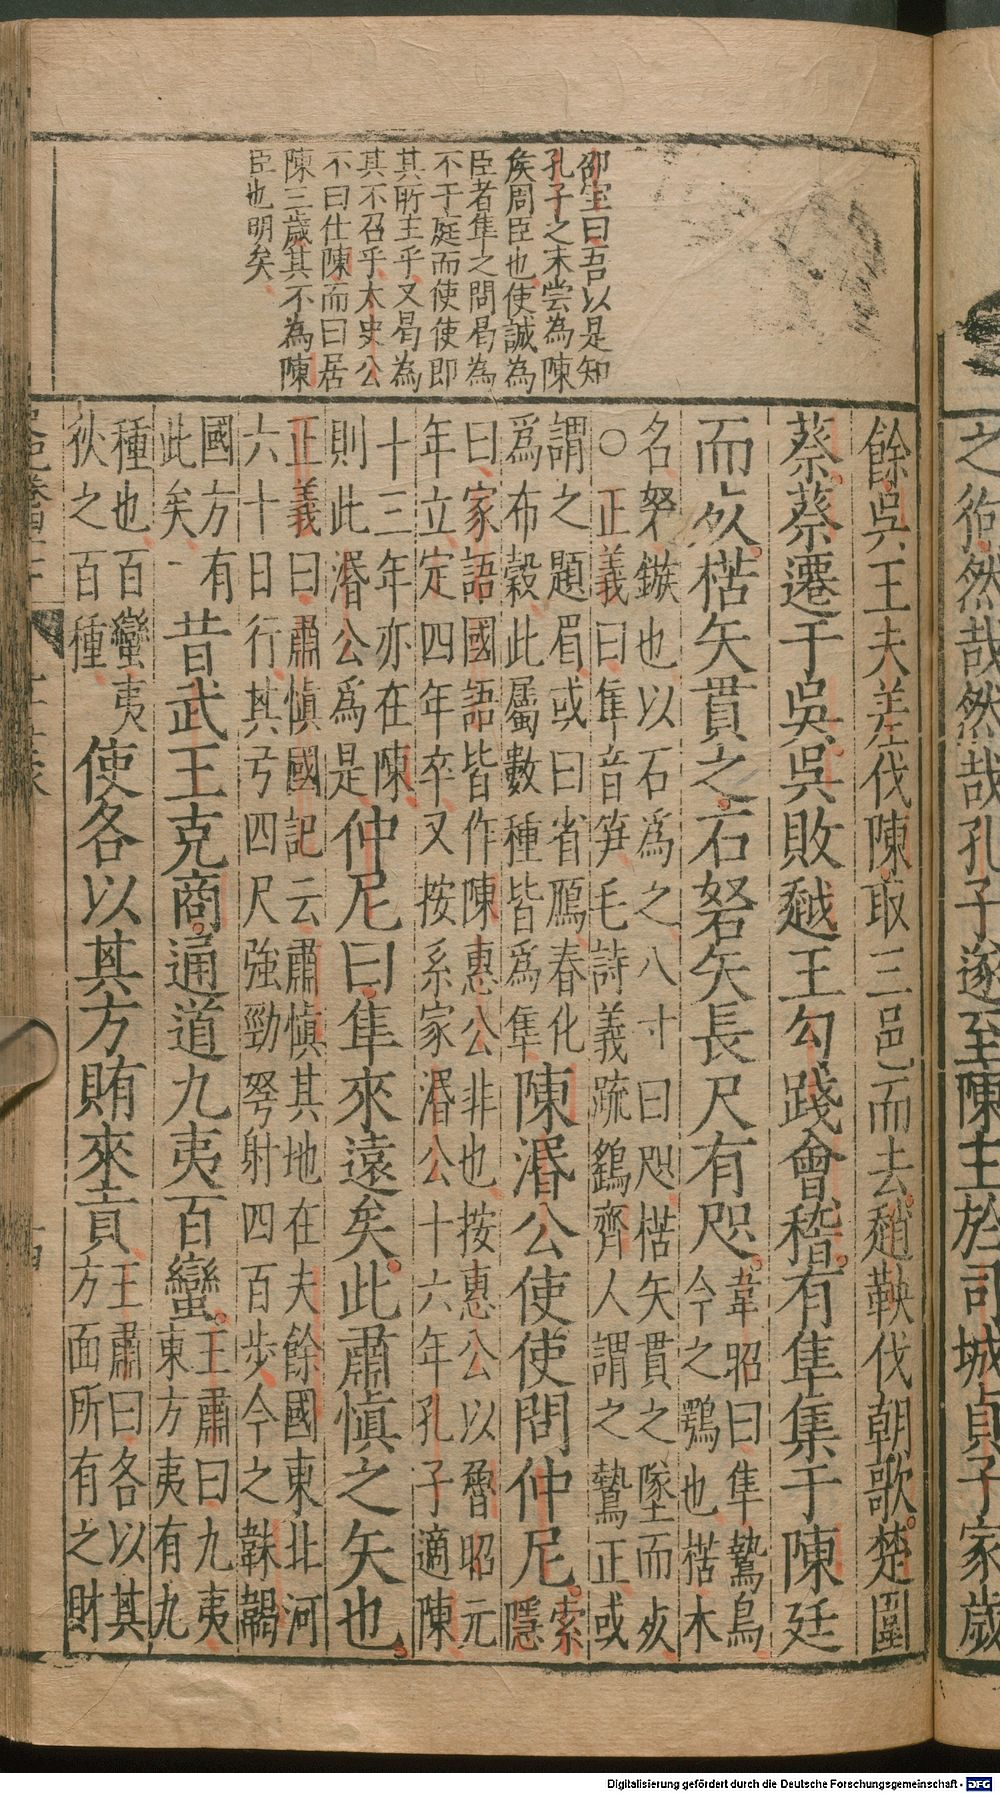 之狗然哉然哉孔子遂至陳主於司城貞子家歲
邵宝曰吾以是知
孔子之未尝為陳
矦周臣也使誠為
臣者隼之問曷為
不于庭而使使即
其所主乎又曷為
其不召乎太史公
不曰仕陳而曰居
陳三歲其不為陳
臣也明矣
餘吳王夫差伐陳取三邑而去趙鞅伐朝歌楚圍
蔡蔡遷于吳吳敗越王勾踐會稽有隼集于陳廷
而死楛矢貫之石砮矢長尺有咫
韋昭曰隼鷙鳥
今之鶚也楛木
名砮鏃也以石為之八寸曰咫楛矢貫之墜而死
○正義曰隼音笋毛詩義疏鷂齊人謂之鷙正或
謂之題眉或曰省鴈春化
爲布穀此屬數種皆爲隼
陳湣公使使問仲尼
索
隱
曰家語國語皆作陳惠公非也按惠公以魯昭元
年立定四年卒又按系家湣公十六年孔子適陳
十三年亦在陳
則此湣公爲是
仲尼曰隼來遠矣此肅慎之矢也
正義曰肅慎國記云肅慎其地在夫餘國東北河
六十日行其弓四尺強勁弩射四百步今之靺鞨
國方有
此矣
昔武王克商通道九夷百蠻
王肅曰九夷
東方夷有九
種也百蠻夷
狄之百種
使各以其方賄來貢
王肅曰各以其
方面所有之財
Digitalisierung gefördert durch die Deutsche Forschungsgemeinschaft - DFG